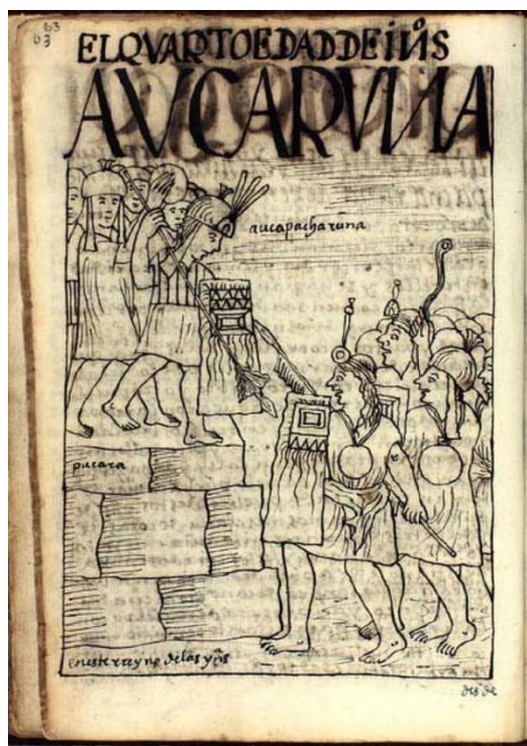 63
63
EL QVARTO EDAD DE INS
AVCARVNA
aucapacharuna
pucara
en este rreyno de las yns
des de